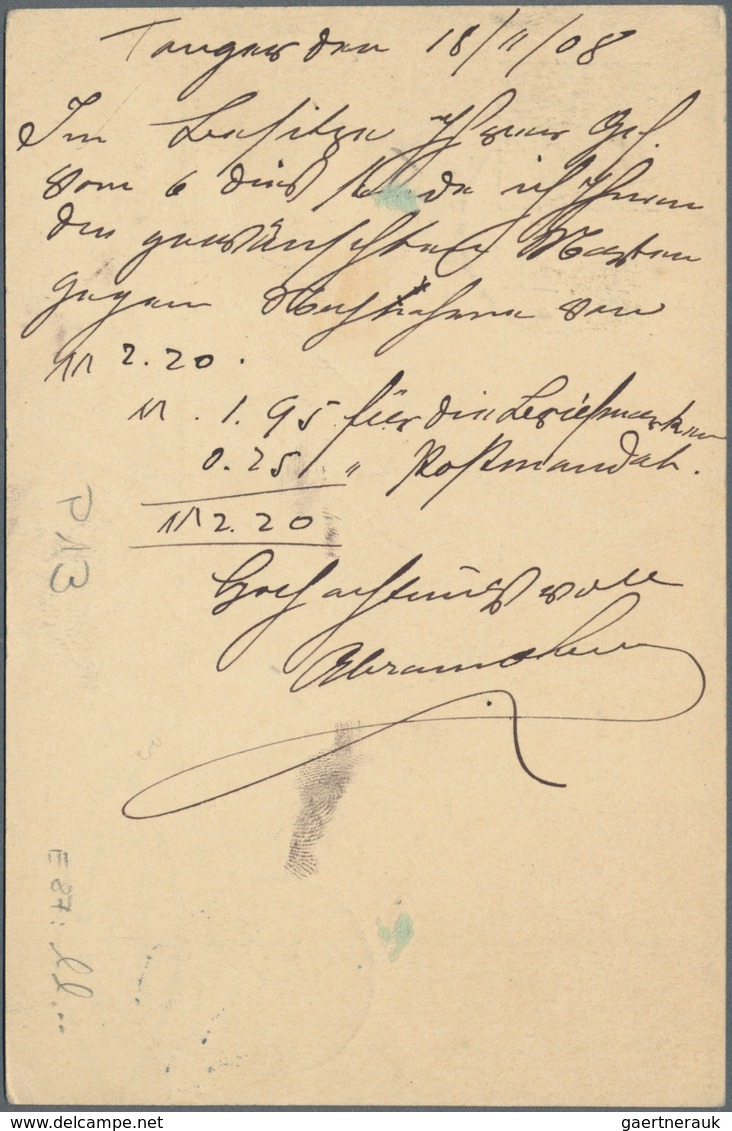 Tanger den 18/11/08
Im Besitze Ihrer Gef.
vom 6 dies sende ich Ihnen
die gewünschten Marken
gegen Nachnahme von
M 2.20.
M. 1.95 für die Briefmarken
0.25 " Postmandat.
M 2.20
Hochachtungsvoll
P 13
E 87:
gaertnerauk